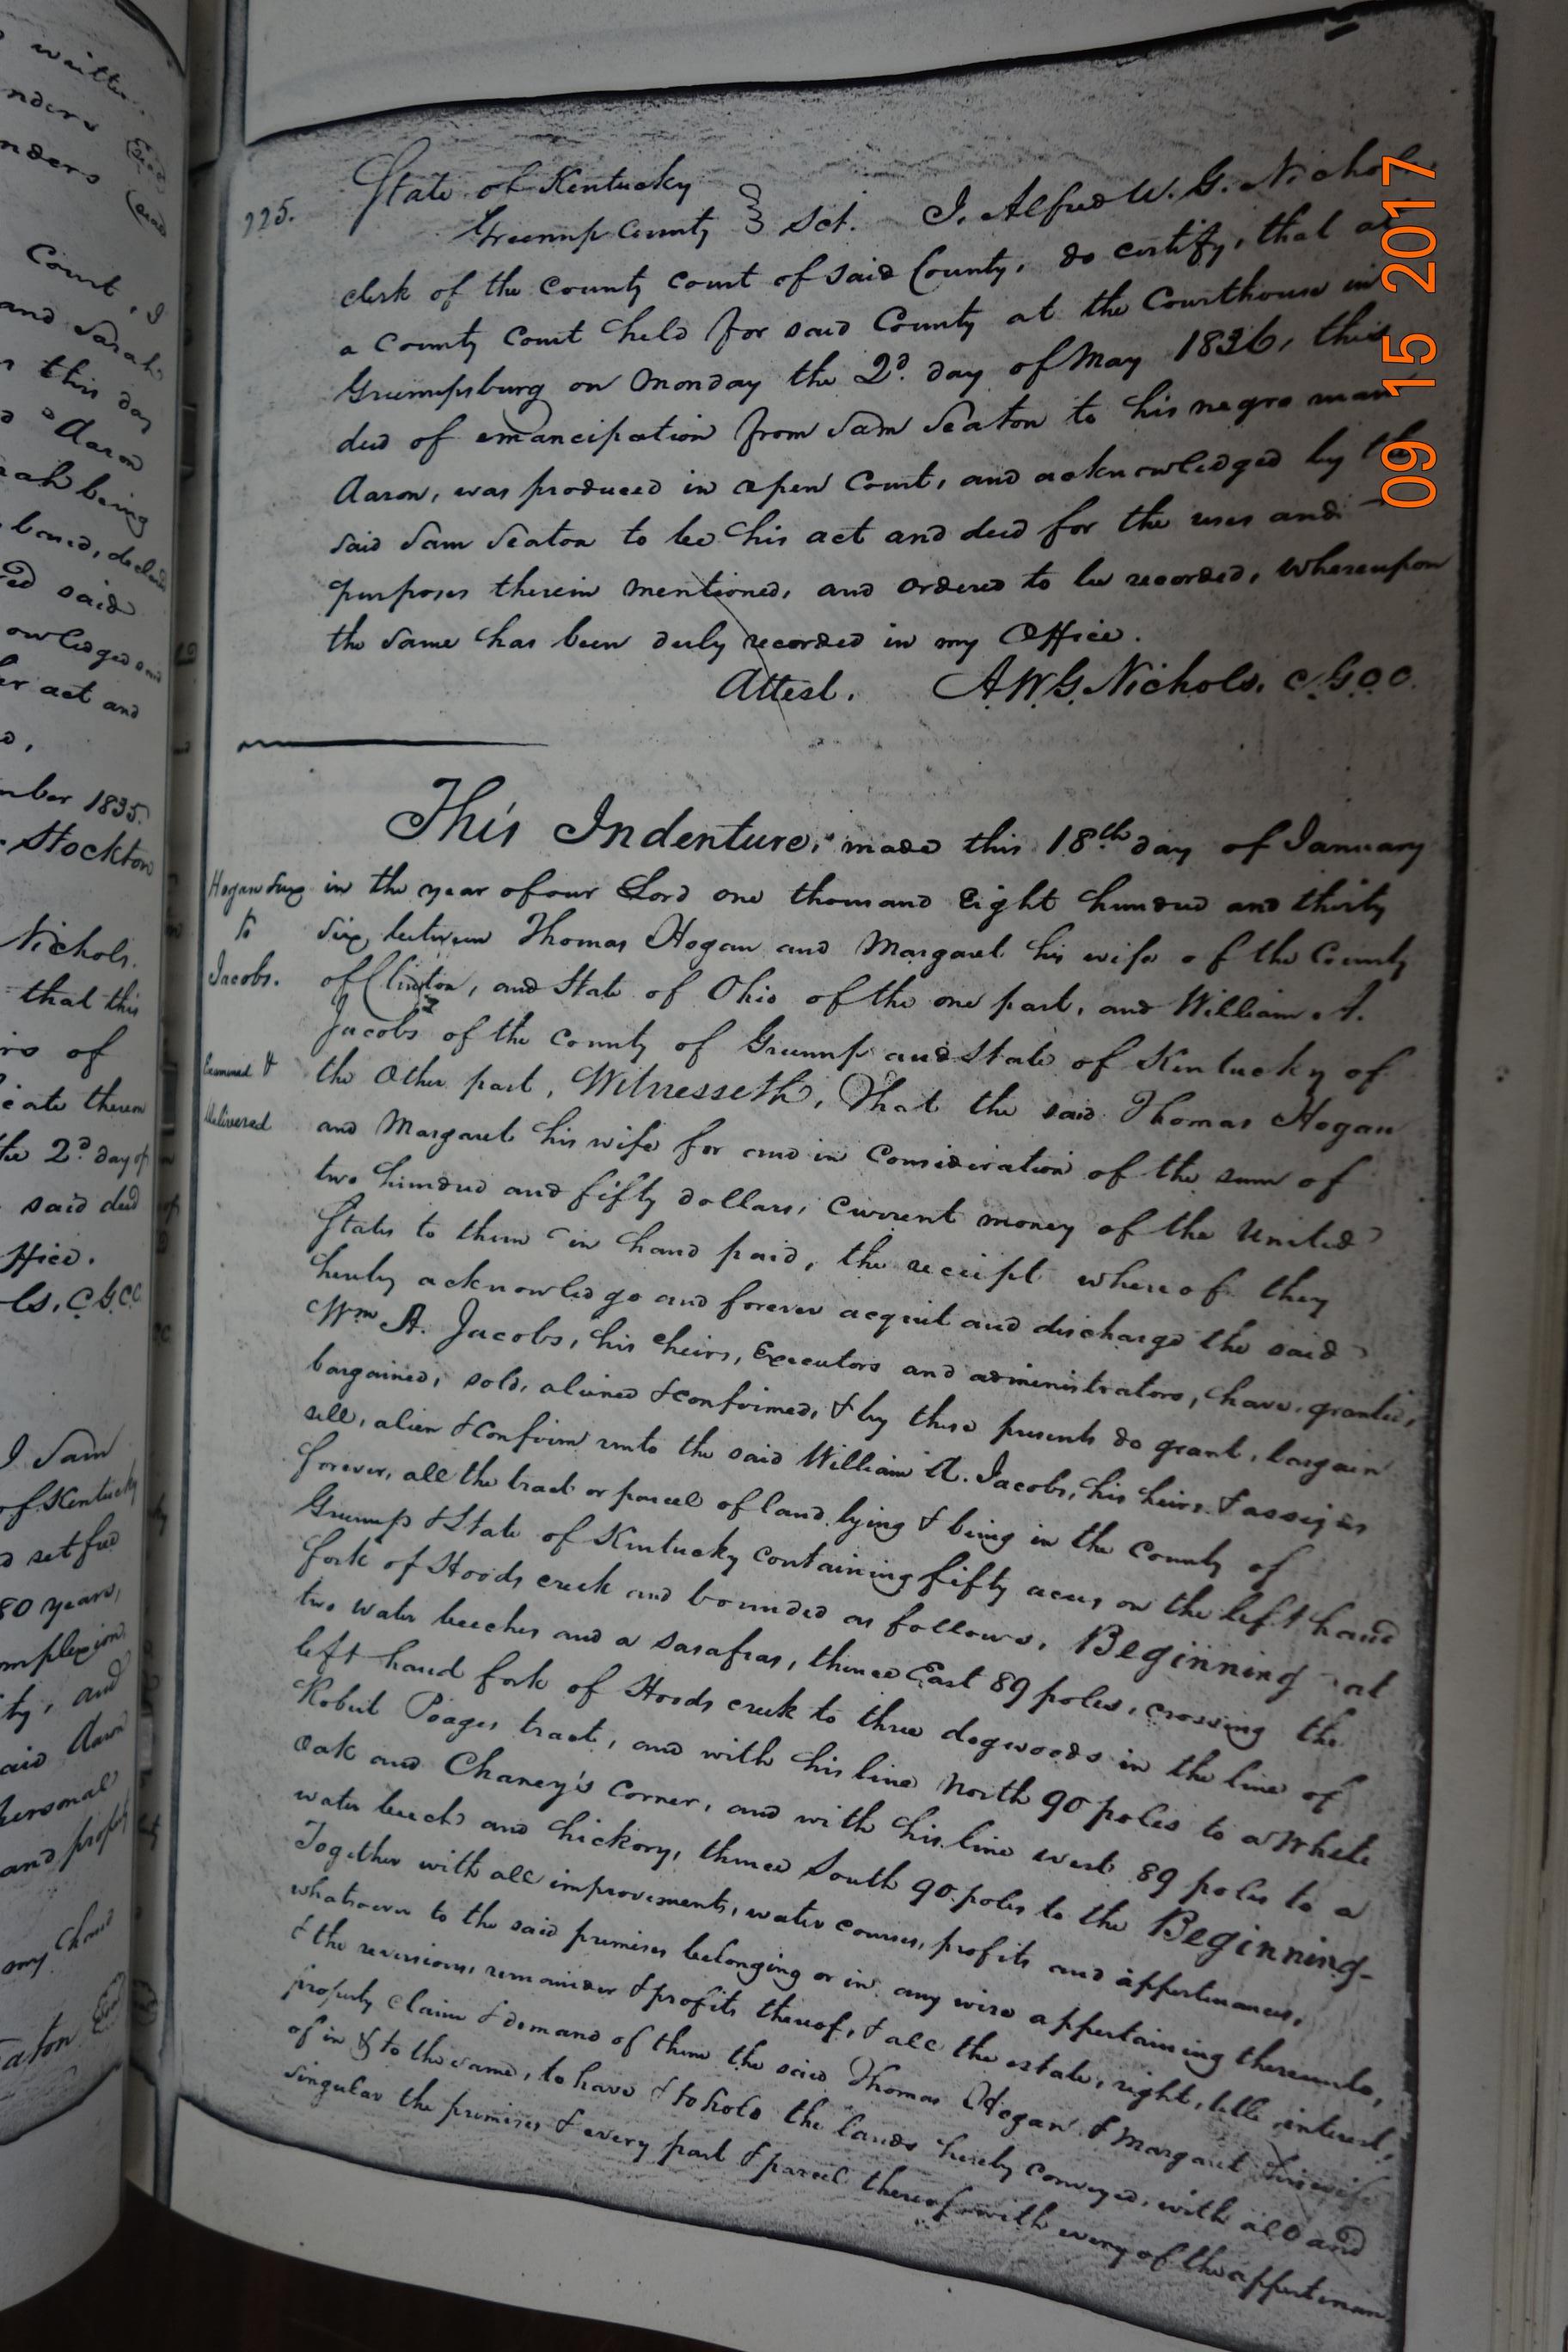 written
nders Seal
nders Seal
Court, I
and Sarah
n this day
Aaron
rah being
ed said
owledged and
er act and
mber 1835.
Stockton
Nichols.
that this
rs of
icate thereon
the 2d. day of
said deed
ffice.
ls, C.G.C.C.
I Sam
of Kentucky
d set free
80 years,
omplexion
ty, and
said Aaron
personal
and
my hand
eaton Seal
225.
State of Kentucky
Greenup County } Sct. I, Alfred W. G. Nichols
clerk of the County Court of said County, do certify, that at
a County Court held for said County at the Courthouse in
Greenupsburg on Monday the 2d. day of May 1836, this
deed of emancipation from Sam Seaton to his negro man
Aaron, was produced in open Court, and acknowledged by the
said Sam Seaton to be his act and deed for the uses and
purposes therein mentioned, and ordered to be recorded, Whereupon
the same has been duly recorded in my Office.
Attest. A.W.G. Nichols. C.G.C.C.
This Indenture, made this 18th day of January
in the year of our Lord one thousand Eight hundred and thirty
six, between Thomas Hogan and Margaret his wife of the County
of Clinton, and State of Ohio of the one part, and William A.
Jacobs of the County of Greenup and State of Kentucky of
the Other part, Witnesseth, That the said Thomas Hogan
and Margaret his wife for and in Consideration of the sum of
two hundred and fifty dollars, current money of the United
States to them in hand paid, the receipt whereof they
hereby acknowledge and forever acquit and discharge the said
Wm A. Jacobs, his heirs, Executors and administrators, have, granted,
bargained, sold, aliened & confirmed, & by these presents do grant, bargain
sell, alien & confirm unto the said William A. Jacobs, his heirs & assigns
forever, all the tract or parcel of land lying & being in the County of
Greenup & State of Kentucky containing fifty acres on the left hand
fork of Hoods creek and bounded as follows, Beginning at
two water beeches and a sasafras, thence East 89 poles, crossing the
left hand fork of Hoods creek to three dogwoods in the line of
Robert Poages tract, and with his line North 90 poles to a White
Oak and Chaney's Corner, and with his line west 89 poles to a
water beech and hickory, thence South 90 poles to the Beginning-
Together with all improvements, water courses, profits and appertinances,
whatsoever to the said premises belonging or in any wise appertaining thereunto,
& the reversions, remainder & profits thereof, & all the estate, right, title, interest,
property claim & demand of them the said Thomas Hogan & Margaret his wife
of in & to the same, to have & to hold the lands hereby conveyed, with all and
singular the premises & every part & parcel thereof with every of the appertinan
Hogan &ux
to
Jacobs.
Examined &
delivered
09 15 2017